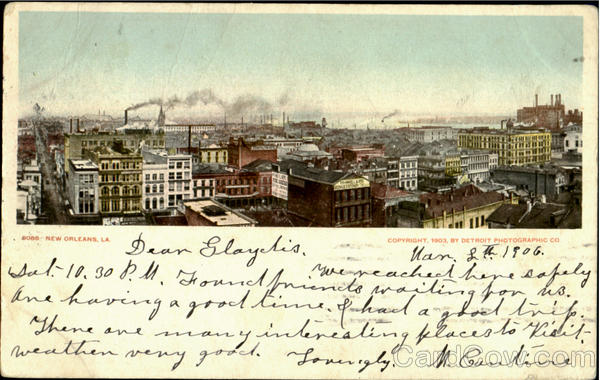 8088 NEW ORLEANS, LA.
COPYRIGHT, 1903, BY DETROIT PHOTOGRAPHIC CO.
Dear Glaydis.
Mar. 8th 1906.
We reached here safely
Sat. 10.30 P.M. Found friends waiting for us.
Are having a good time. I had a good trip.
There are many interesting places to Visit.
weather very good. Lovingly. M.
CardCow.com